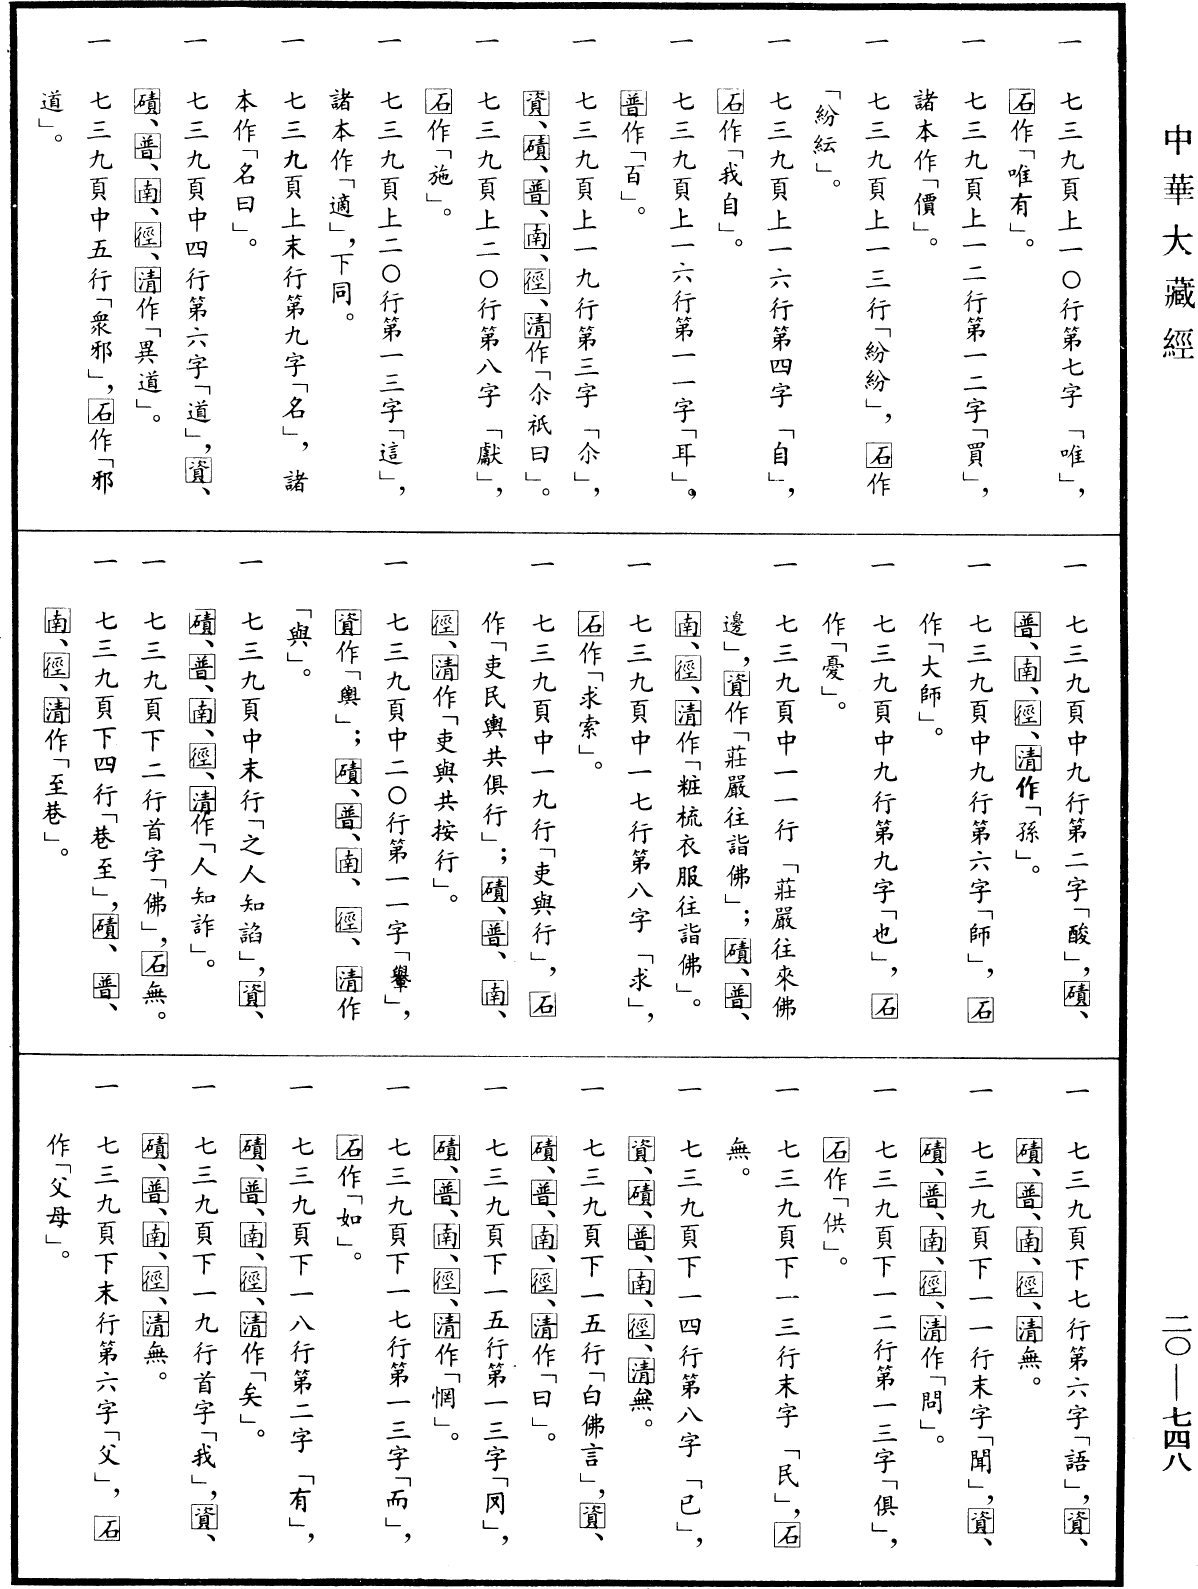 中華大藏經
二〇—七四八
一 七三九頁上一〇行第七字「唯」，
石作「唯有」。
一 七三九頁上一二行第一二字「買」，
諸本作「價」。
一 七三九頁上一三行「紛紛」，石作
「紛紜」。
一 七三九頁上一六行第四字「自」，
石作「我自」。
一 七三九頁上一六行第一一字「耳」。
普作「百」。
一 七三九頁上一九行第三字「尒」，
資、磧、普、南、徑、清作「尒祇曰」。
一 七三九頁上二〇行第八字「獻」，
石作「施」。
一 七三九頁上二〇行第一三字「這」，
諸本作「適」，下同。
一 七三九頁上末行第九字「名」，諸
本作「名曰」。
一 七三九頁中四行第六字「道」，資、
磧、普、南、徑、清作「異道」。
一 七三九頁中五行「衆邪」，石作「邪
道」。
一 七三九頁中九行第二字「酸」，磧、
普、南、徑、清作「孫」。
一 七三九頁中九行第六字「師」，石
作「大師」。
一 七三九頁中九行第九字「也」，石
作「憂」。
一 七三九頁中一一行「莊嚴往來佛
邊」，資作「莊嚴往詣佛」；磧、普、
南、徑、清作「粧梳衣服往詣佛」。
一 七三九頁中一七行第八字「求」，
石作「求索」。
一 七三九頁中一九行「吏與行」，石
作「吏民輿共俱行」；磧、普、南、
徑、清作「吏與共按行」。
一 七三九頁中二〇行第一一字「轝」，
資作「輿」；磧、普、南、徑、清作
「與」。
一 七三九頁中末行「之人知諂」，資、
磧、普、南、徑、清作「人知詐」。
一 七三九頁下二行首字「佛」，石無。
一 七三九頁下四行「巷至」，磧、普、
南、徑、清作「至巷」。
一 七三九頁下七行第六字「語」，資、
磧、普、南、徑、清無。
一 七三九頁下一一行末字「聞」，資、
磧、普、南、徑、清作「問」。
一 七三九頁下一二行第一三字「俱」，
石作「供」。
一 七三九頁下一三行末字「民」，石
無。
一 七三九頁下一四行第八字「已」，
資、磧、普、南、徑、清無。
一 七三九頁下一五行「白佛言」，資、
磧、普、南、徑、清作「曰」。
一 七三九頁下一五行第一三字「罔」，
磧、普、南、徑、清作「惘」。
一 七三九頁下一七行第一三字「而」，
石作「如」。
一 七三九頁下一八行第二字「有」，
磧、普、南、徑、清作「矣」。
一 七三九頁下一九行首字「我」，資、
磧、普、南、徑、清無。
一 七三九頁下末行第六字「父」，石
作「父母」。